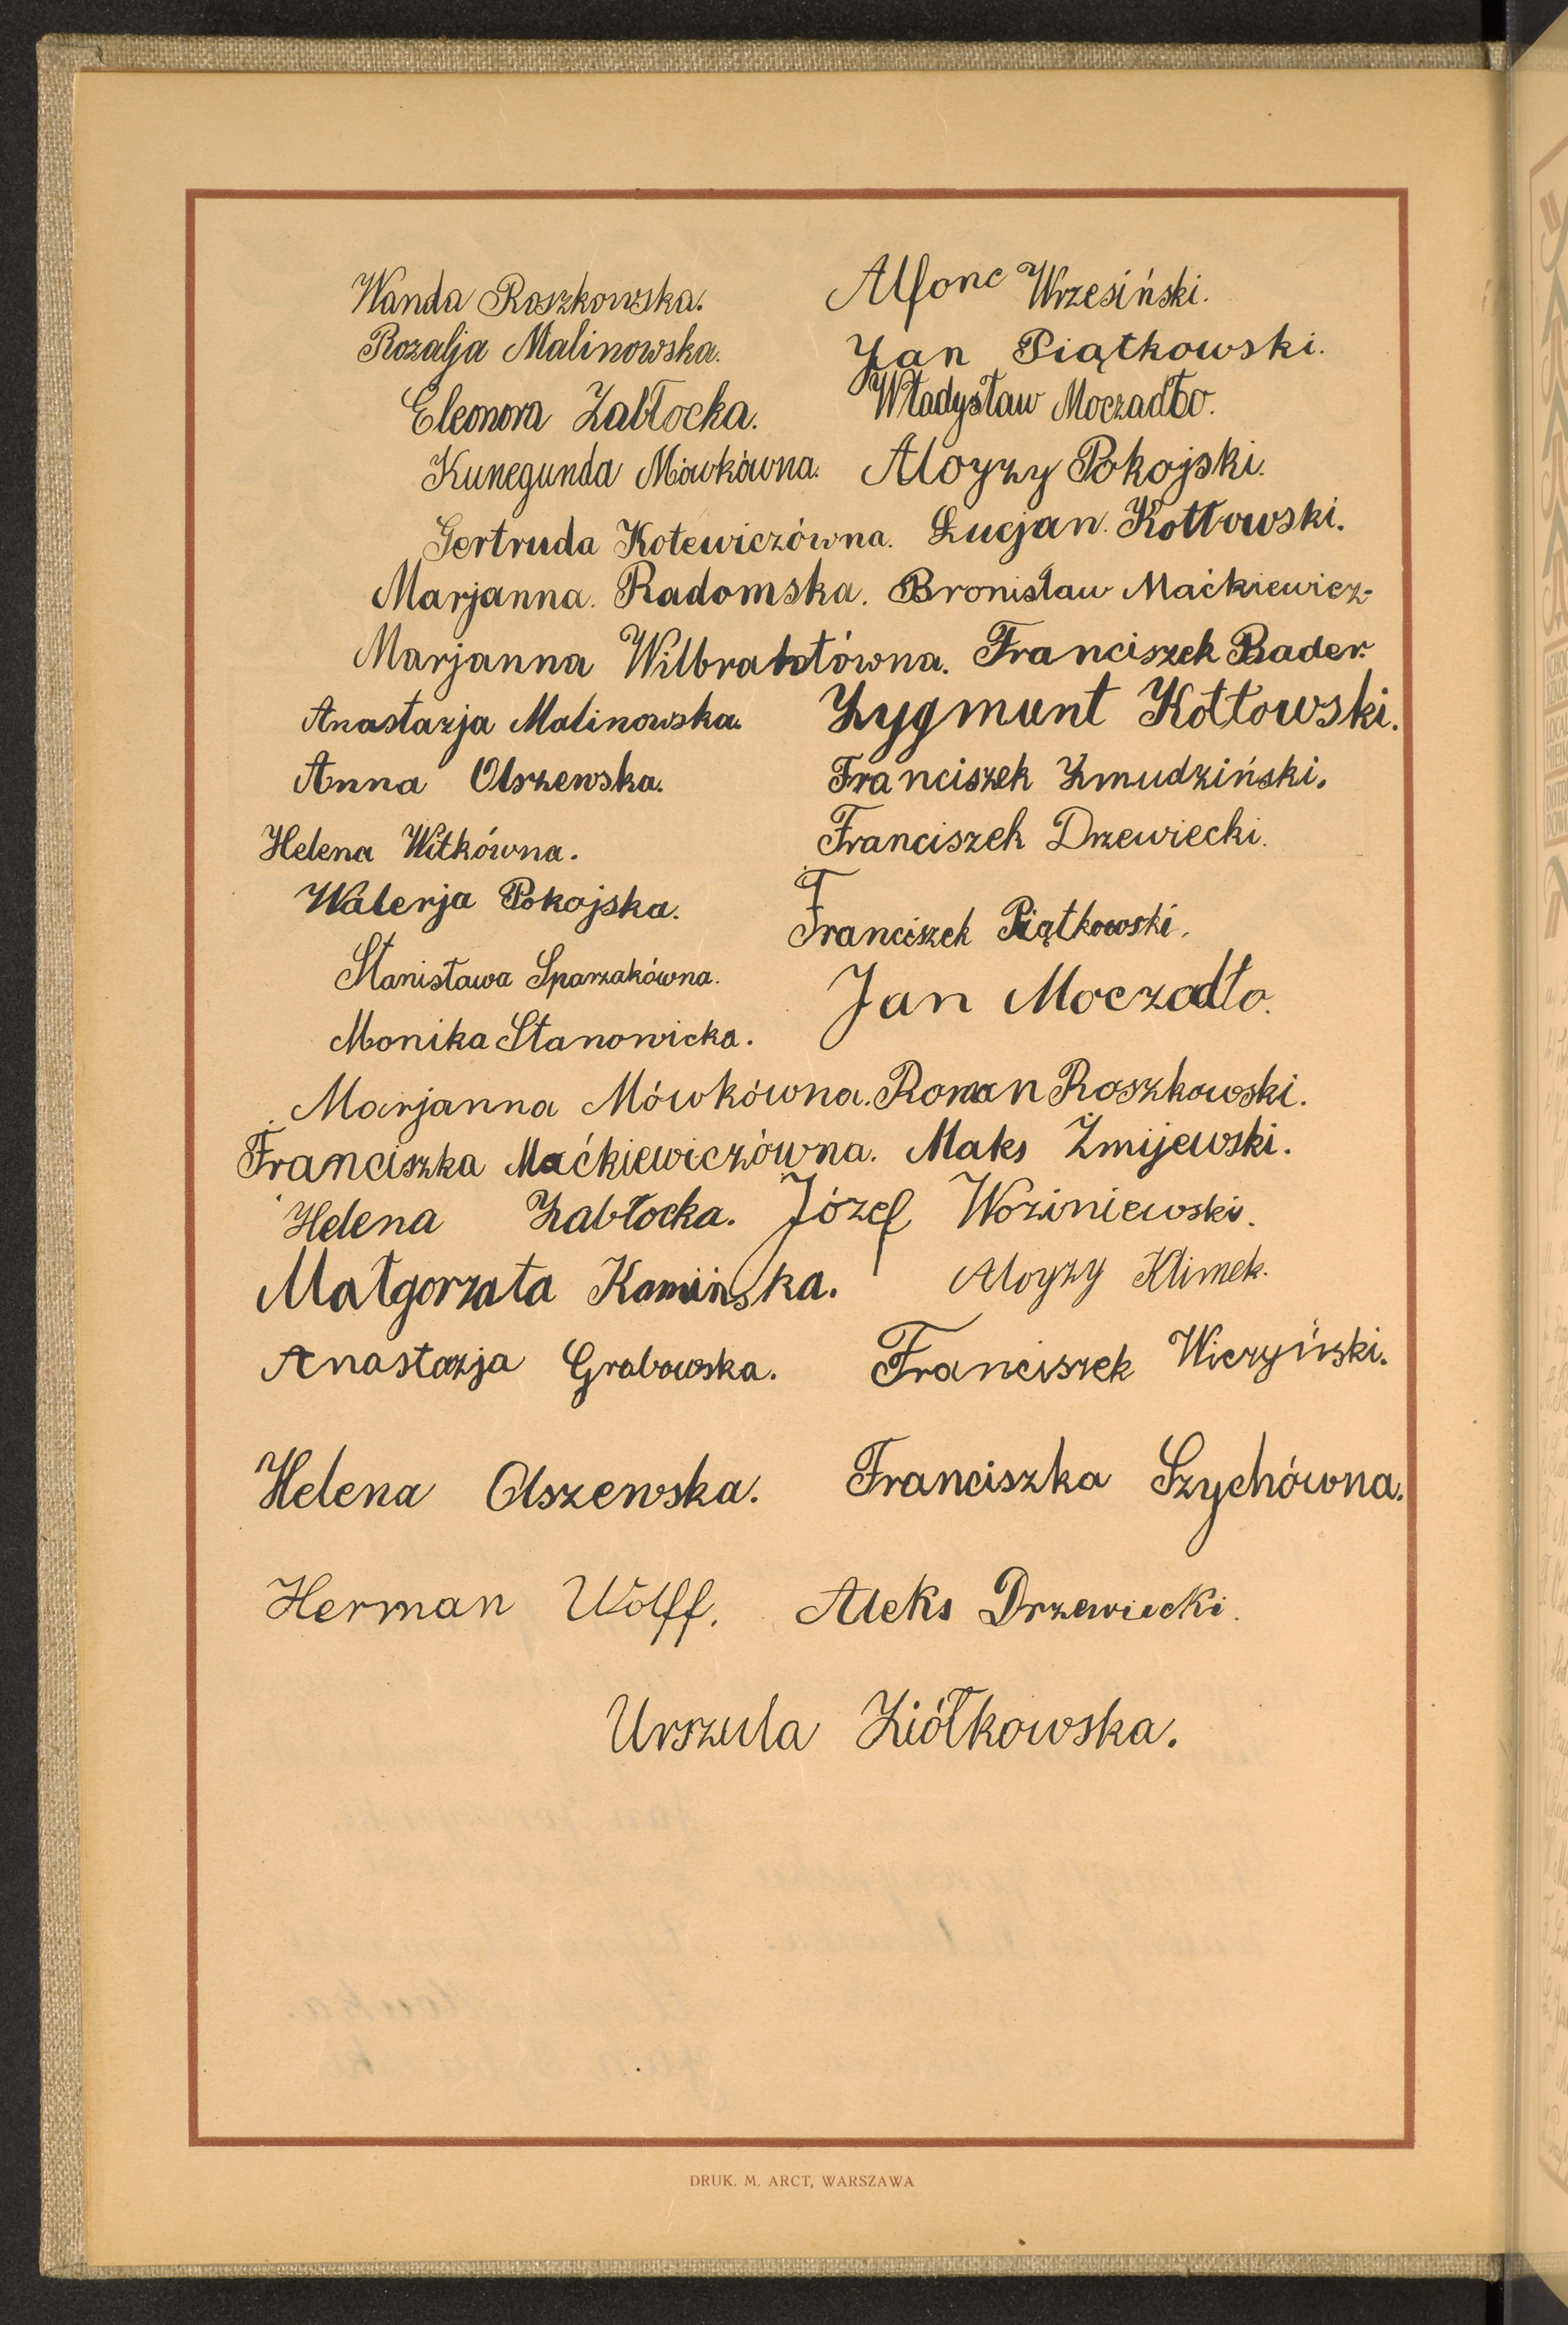 Wanda Roszkowska. Alfonc Wrzesiński.
Rozalja Malinowska. Jan Piątkowski.
Eleonora Zabłocka. Władysław Moczadło.
Kunegunda Mówkówna. Aloyzy Pokojski.
Gertruda Kotewiczówna. Łucjan. Kotłowski.
Marjanna. Radomska. Bronisław Maćkiewicz
Marjanna Wilbrahtówna. Franciszek Bader.
Anastazja Malinowska. Zygmunt Kotłowski.
Anna Olszewska. Franciszek Zmudziński.
Helena Witkówna. Franciszek Drzewiecki.
Walerja Pokojska. Franciszek Piątkowski.
Stanisława Sparzakówna. Jan Moczadło.
Monika Stanowicka.
Marjanna Mówkówna. Roman Roszkowski.
Franciszka Maćkiewiczówna. Maks Żmijewski.
Helena Zabłocka. Józef Woziniewski.
Małgorzata Kamińska. Aloyzy Klimek.
Anastazja Grabowska. Franciszek Wiczyński.
Helena Olszewska. Franciszka Szychówna.
Herman Wolff. Aleks Drzewiecki.
Urszula Ziółkowska.
DRUK. M. ARCT, WARSZAWA